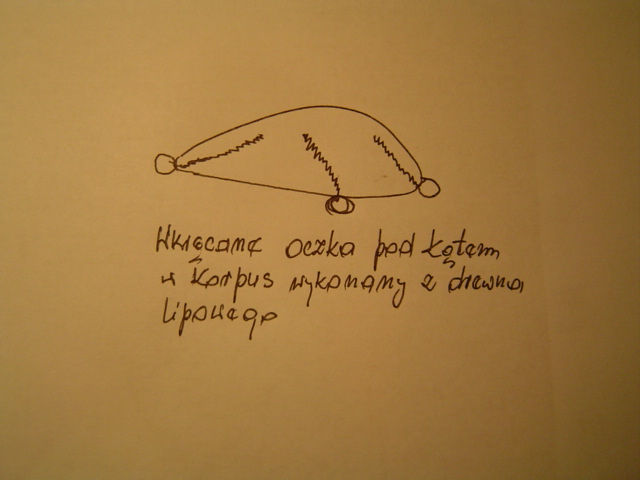 Wkręcane oczka pod kątem
w korpus wykonany z drewna
lipowego